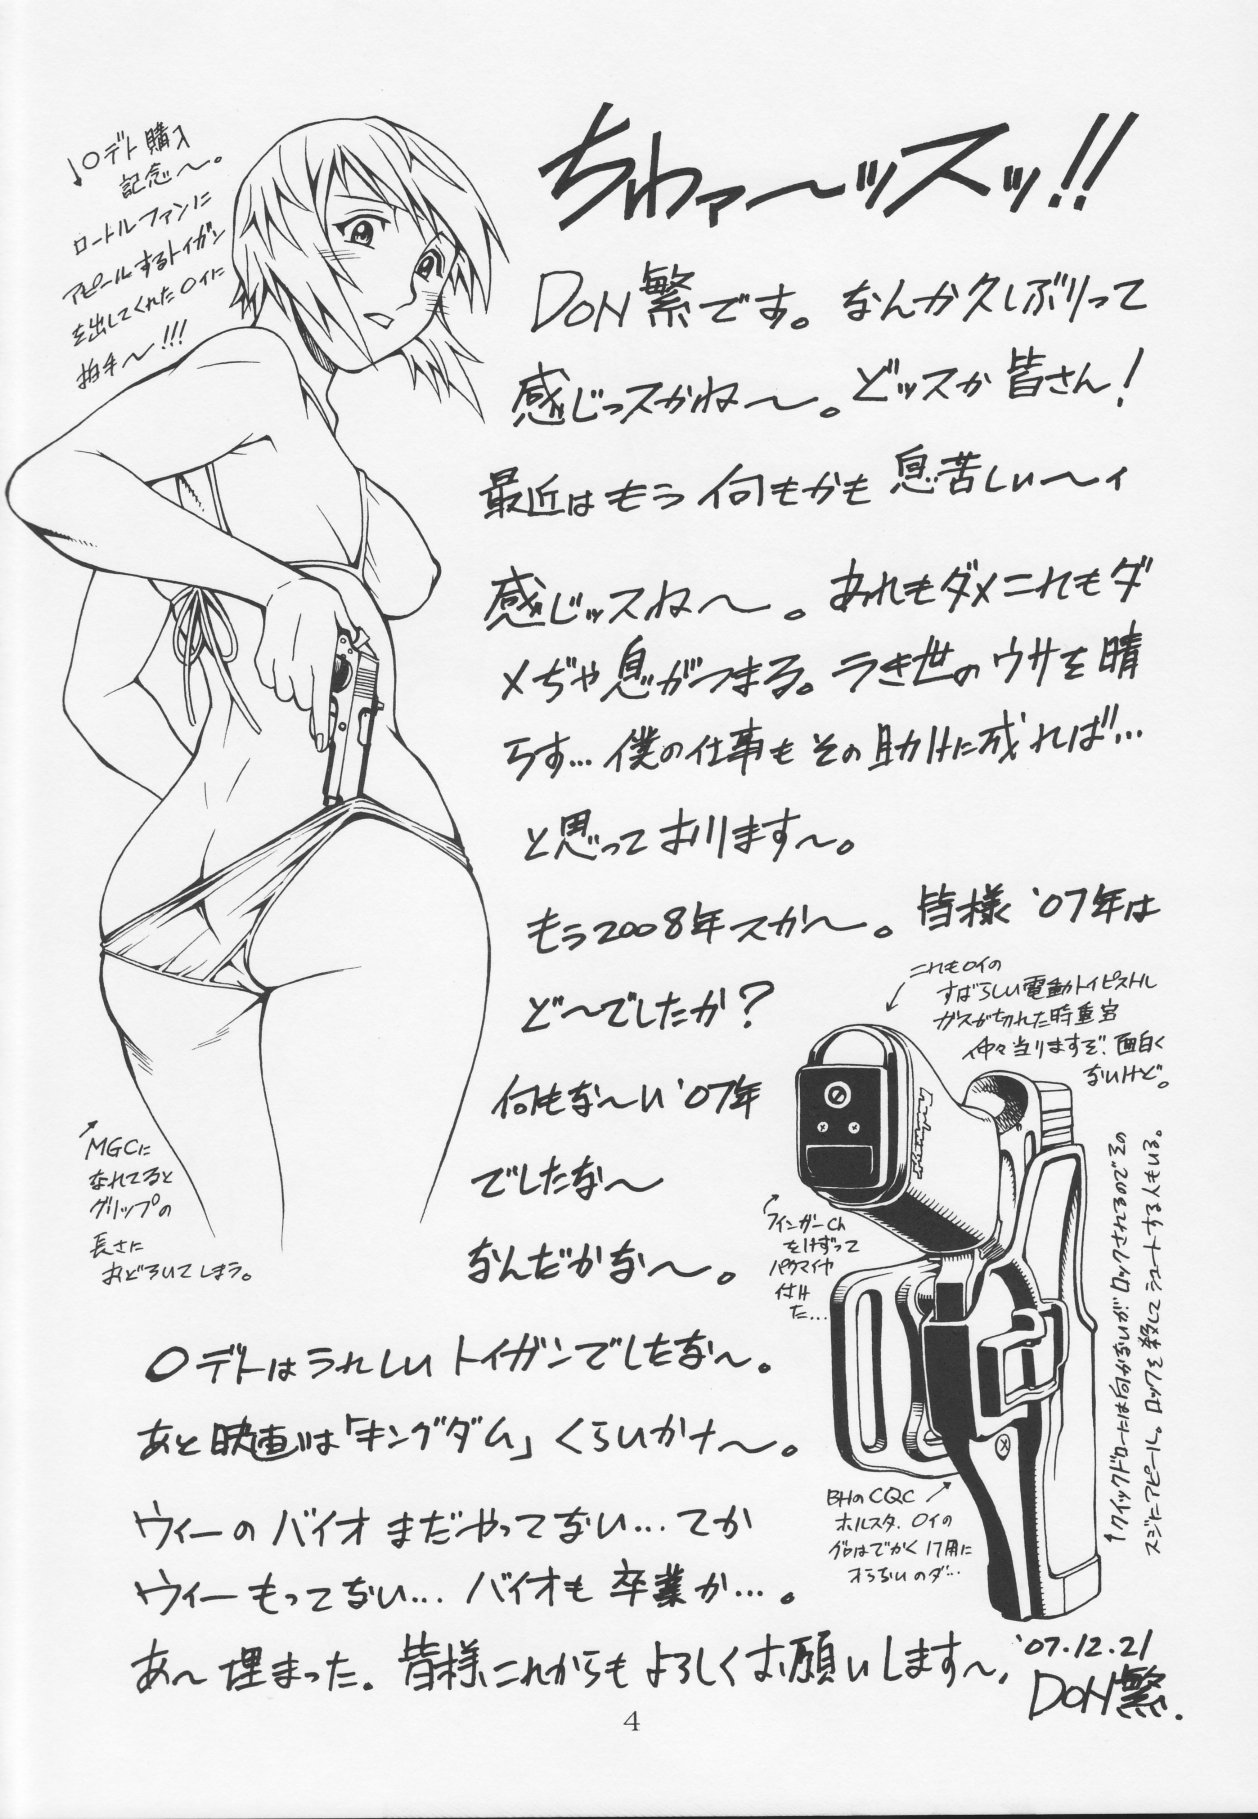 ちわァ～ッスッ!!
DON繁です。なんか久しぶりって
感じっスかね～。どッスか皆さん!
最近はもう何もかも息苦しい～ィ
感じッスね～。あれもダメこれもダ
メぢゃ息がつまる。うき世のウサを晴
らす…僕の仕事もその助けに成れば…
と思っております～。
もう2008年スか～。皆様'07年は
ど～でしたか?
何もな～い'07年
でしたな～
なんだかな～。
〇デトはうれしいトイガンでしたな～。
あと映画は「キングダム」くらいかナ～。
ウィーのバイオまだやってない…てか
ウィーもってない…バイオも卒業か…。
あ～埋まった。皆様、これからもよろしくお願いします～、
'07.12.21
DON繁.
↓〇デト購入
記念～。
ロートルファンに
アピールするトイガン
を出してくれた〇イに
拍手～!!!
MGCに
なれてると
グリップの
長さに
おどろいてしまう。
これも〇イの
すばらしい電動トイピストル
ガスが切れた時重宝
仲々当りますぞ、面白く
ないけど。
フィンガーch
をけずって
パクマイヤ
付け
た…
BHのCQC
ホルスタ、〇イの
グロはでかく17用に
オうないのダ…
↑クイックドローには向かないが、ロックされるのでその
スジにアピール。ロックを殺してシュートする人もいる。
4